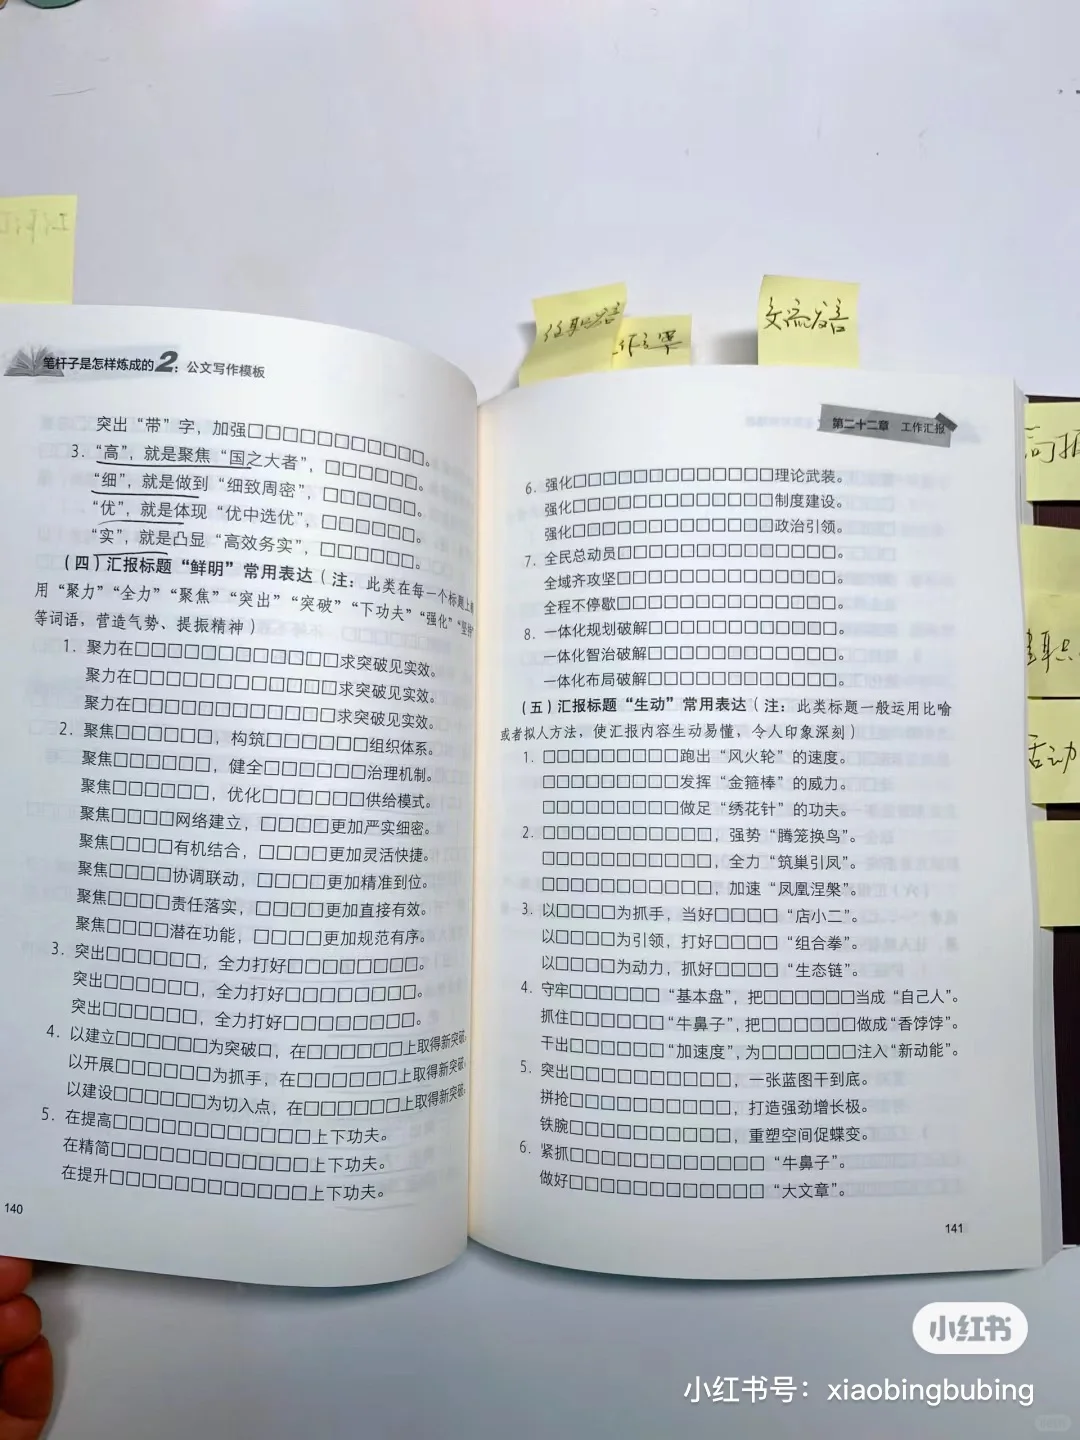 交流发言
笔杆子是怎样炼成的2：公文写作模板
突出“带”字，加强□□□□□□□□□□。
3. “高”，就是聚焦“国之大者”，□□□□□□。
“细”，就是做到“细致周密”，□□□□□□。
“优”，就是体现“优中选优”，□□□□□□。
“实”，就是凸显“高效务实”，□□□□□□。
（四）汇报标题“鲜明”常用表达（注：此类在每一个标题上
用“聚力”“全力”“聚焦”“突出”“突破”“下功夫”“强化”“坚持”
等词语，营造气势、提振精神）
1. 聚力在□□□□□□□□□□□□求突破见实效。
聚力在□□□□□□□□□□□□求突破见实效。
聚力在□□□□□□□□□□□□求突破见实效。
2. 聚焦□□□□□□，构筑□□□□□□组织体系。
聚焦□□□□□□，健全□□□□□□治理机制。
聚焦□□□□□□，优化□□□□□□供给模式。
聚焦□□□□网络建立，□□□□更加严实细密。
聚焦□□□□有机结合，□□□□更加灵活快捷。
聚焦□□□□协调联动，□□□□更加精准到位。
聚焦□□□□责任落实，□□□□更加直接有效。
聚焦□□□□潜在功能，□□□□更加规范有序。
3. 突出□□□□□□，全力打好□□□□□□□□。
突出□□□□□□，全力打好□□□□□□□□。
突出□□□□□□，全力打好□□□□□□□□。
4. 以建立□□□□□□为突破口，在□□□□□□上取得新突破。
以开展□□□□□□为抓手，在□□□□□□上取得新突破。
以建设□□□□□□为切入点，在□□□□□□上取得新突破。
5. 在提高□□□□□□□□□□□□上下功夫。
在精简□□□□□□□□□□□□上下功夫。
在提升□□□□□□□□□□□□上下功夫。
140
第二十二章 工作汇报
6. 强化□□□□□□□□□□□□理论武装。
强化□□□□□□□□□□□□制度建设。
强化□□□□□□□□□□□□政治引领。
7. 全民总动员□□□□□□□□□□□□□。
全域齐攻坚□□□□□□□□□□□□□。
全程不停歇□□□□□□□□□□□□□。
8. 一体化规划破解□□□□□□□□□□□。
一体化智治破解□□□□□□□□□□□。
一体化布局破解□□□□□□□□□□□。
（五）汇报标题“生动”常用表达（注：此类标题一般运用比喻
或者拟人方法，使汇报内容生动易懂，令人印象深刻）
1. □□□□□□□□跑出“风火轮”的速度。
□□□□□□□□发挥“金箍棒”的威力。
□□□□□□□□做足“绣花针”的功夫。
2. □□□□□□□□□□，强势“腾笼换鸟”。
□□□□□□□□□□，全力“筑巢引凤”。
□□□□□□□□□□，加速“凤凰涅槃”。
3. 以□□□□为抓手，当好□□□□“店小二”。
以□□□□为引领，打好□□□□“组合拳”。
以□□□□为动力，抓好□□□□“生态链”。
4. 守牢□□□□□□“基本盘”，把□□□□□□当成“自己人”。
抓住□□□□□□“牛鼻子”，把□□□□□□做成“香饽饽”。
干出□□□□□□“加速度”，为□□□□□□注入“新动能”。
5. 突出□□□□□□□□□□，一张蓝图干到底。
拼抢□□□□□□□□□□，打造强劲增长极。
铁腕□□□□□□□□□□，重塑空间促蝶变。
6. 紧抓□□□□□□□□□□□□“牛鼻子”。
做好□□□□□□□□□□□□“大文章”。
141
活动
小红书
小红书号：xiaobingbubing